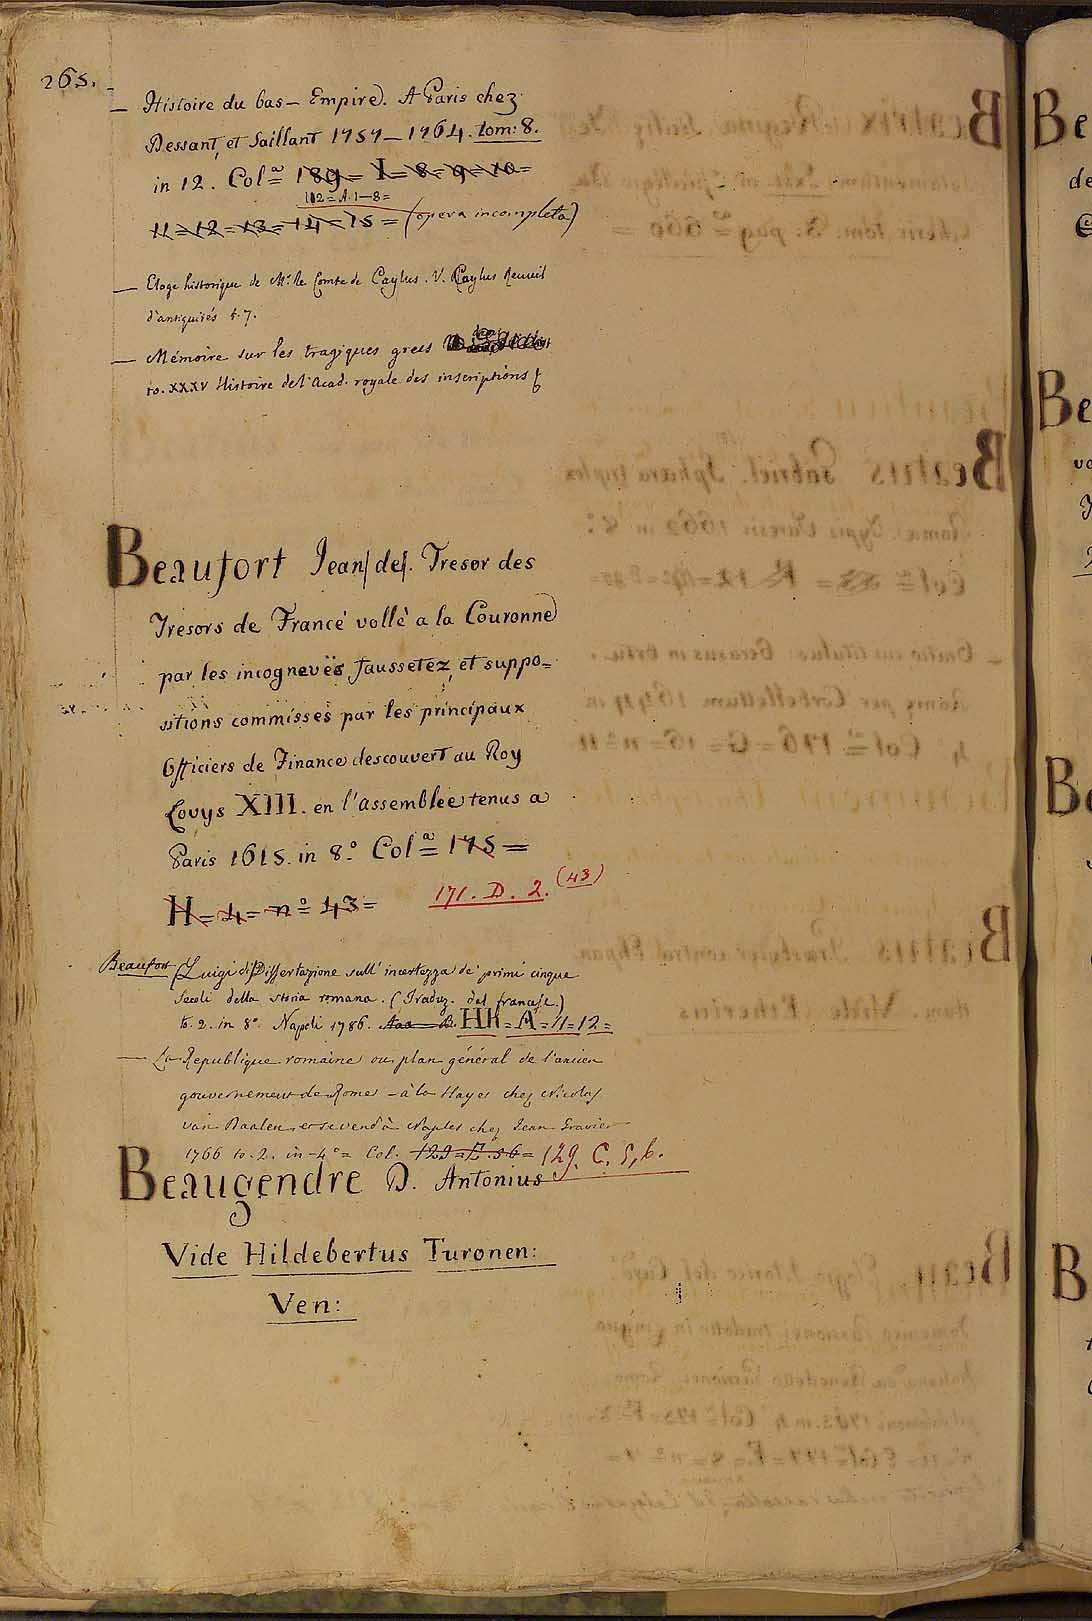 265.
— Histoire du bas – Empire. A Paris chez
Dessant, et Saillant 1757 — 1764. tom: 8.
in 12. Col.ª = 189 = I = 8 = 9 = 10 =
102 = A. 1 — 8 =
11 = 12 = 13 = 14 = 15 = (opera incompleta)
— Eloge historique de Mr. le Comte de Caylus. V. Caylus Recueil
d'antiquités t. 7.
— Mémoire sur les tragiques grecs dans
to. XXXV Histoire de l'Acad. royale des inscriptions
Beaufort Jean (de). Tresor des
Tresors de France vollè a la Couronne
par les incognevës faussetez, et suppo=
sitions commisses par les principaux
Officiers de Finance descouvert au Roy
Lovys XIII. en l'assemblee tenus a
Paris 1615. in 8.º Col.ª = 175 =
H = 4 = nº = 43 = 171. D. 2. (43)
Beaufort (Luigi di) Dissertazione sull' incertezza de' primi cinque
Secoli della storia romana. (Traduz. dal francese.)
to. 2. in 8º. Napoli 1786. HH = A = 11 = 12 =
— La Republique romaine ou plan général de l'ancien
gouvernement de Rome – à la Hayes chez Nicolas
van Daalen, et se vend à Naples chez Jean Gravier
1766 to. 2. in – 4º = Col. 129 = E. 56 = 129. C. 5, 6.
Beaugendre D. Antonius
Vide Hildebertus Turonen:
Ven: